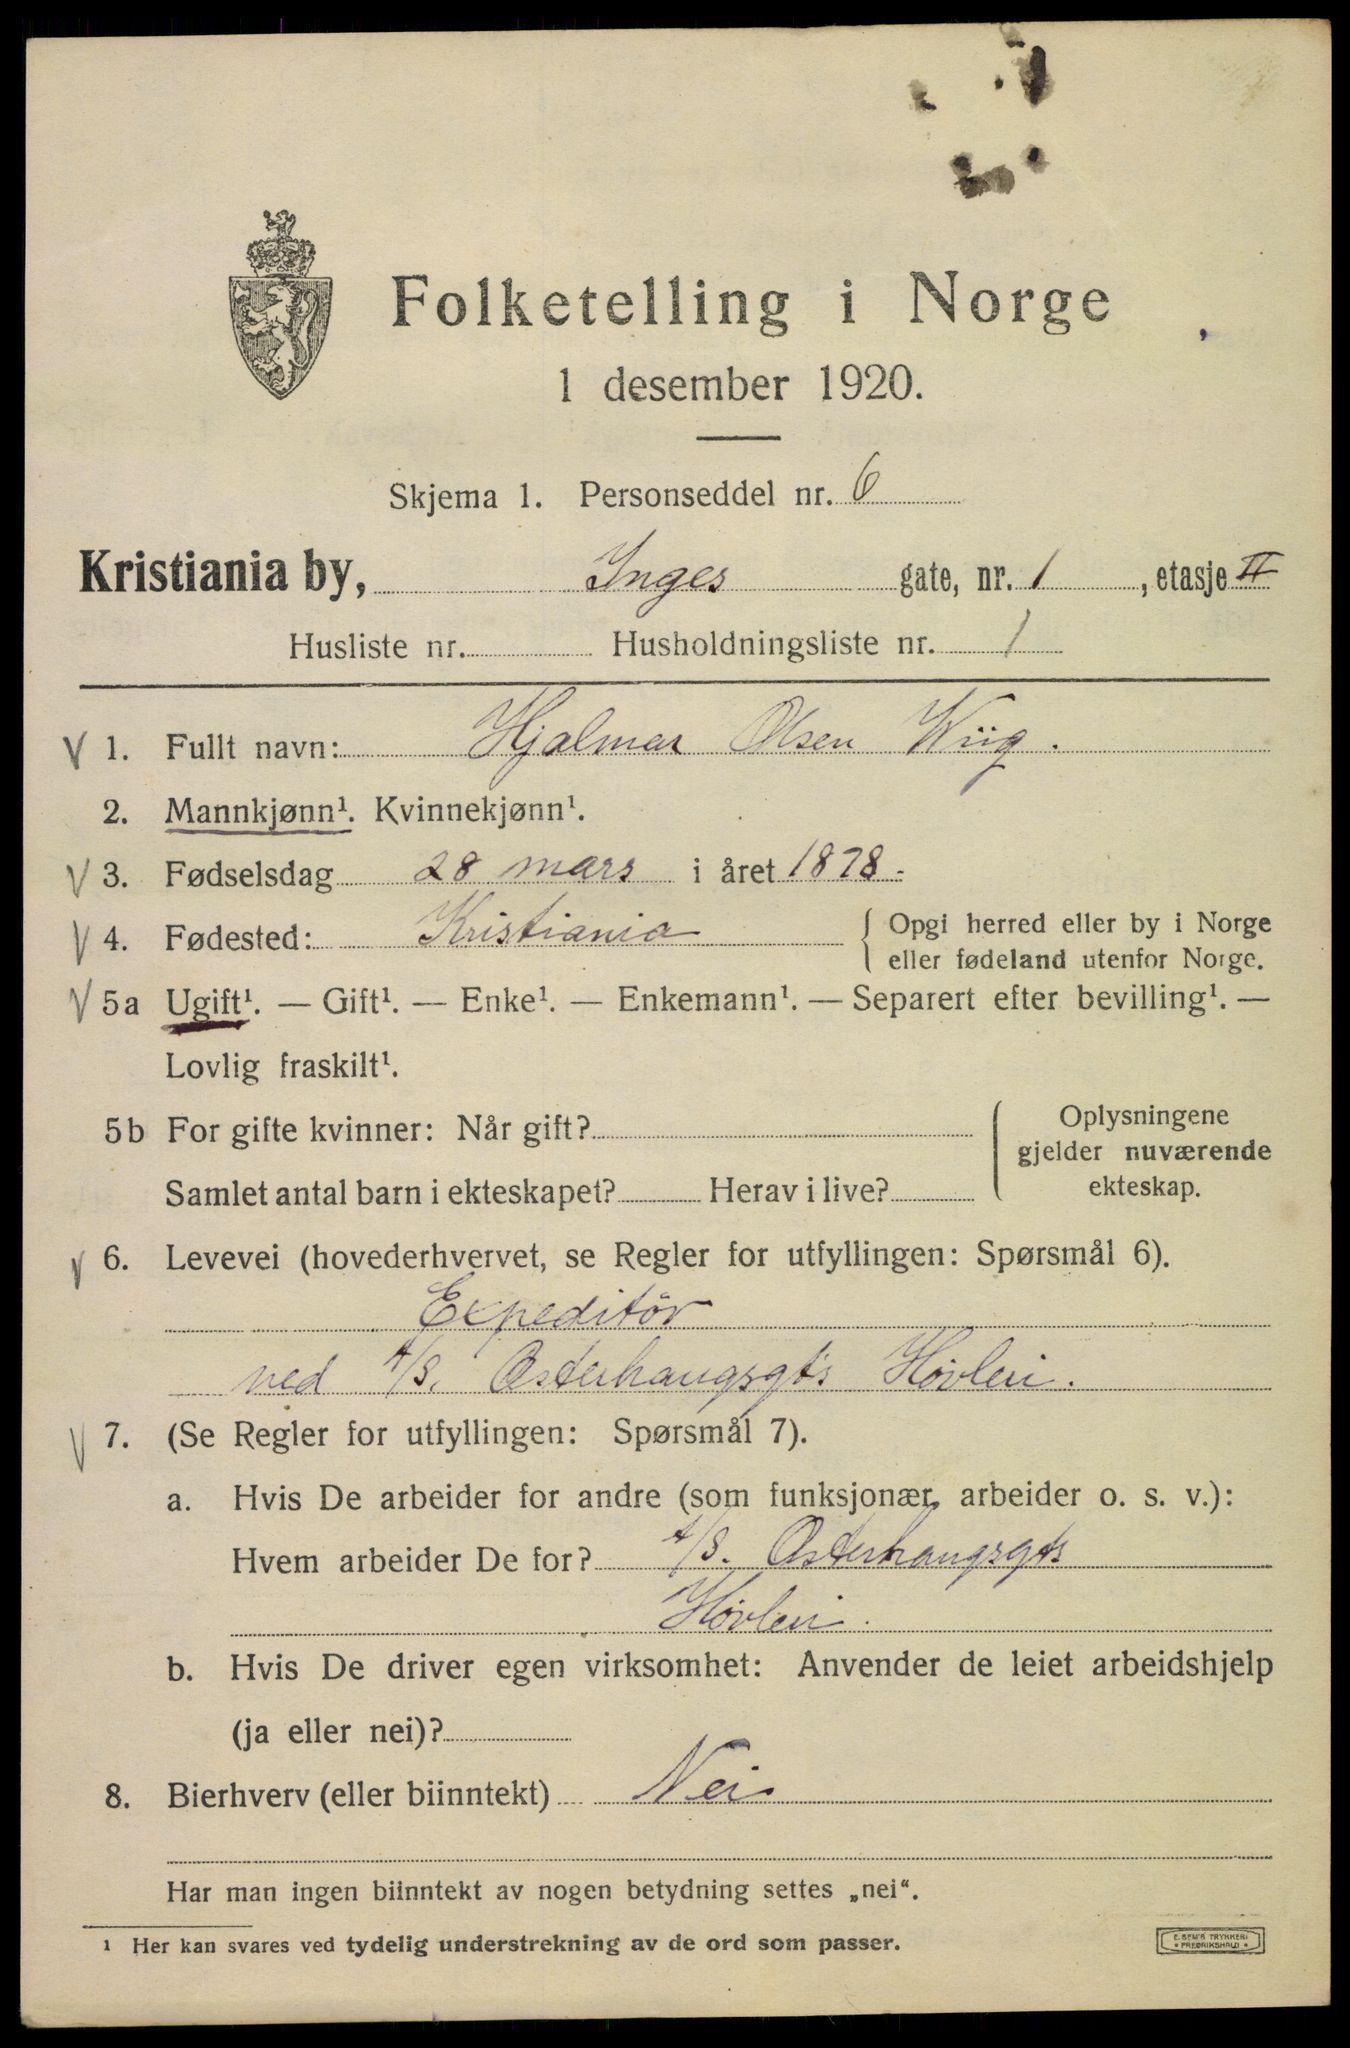 Folketelling i Norge
1 desember 1920.
Skjema 1. Personseddel nr. 6
Kristiania by, Inges gate, nr. 1, etasje II
Husliste nr. Husholdningsliste nr. 1
V 1. Fullt navn: Hjalmar Olsen Wiig.
2. Mannkjønn¹. Kvinnekjønn¹.
V 3. Fødselsdag 28 mars i året 1878.
V 4. Fødested: Kristiania { Opgi herred eller by i Norge
eller fødeland utenfor Norge.
V 5a Ugift¹. — Gift¹. — Enke¹. — Enkemann¹. — Separert efter bevilling¹. —
Lovlig fraskilt¹.
5b For gifte kvinner: Når gift? { Oplysningene
gjelder nuværende
Samlet antal barn i ekteskapet? Herav i live? ekteskap.
V 6. Levevei (hovederhvervet, se Regler for utfyllingen: Spørsmål 6).
Expeditör
ved A/S. Osterhaugsgts Hövleri.
V 7. (Se Regler for utfyllingen: Spørsmål 7).
a. Hvis De arbeider for andre (som funksjonær, arbeider o. s. v.):
Hvem arbeider De for? A/S. Osterhaugsgts
Hövleri.
b. Hvis De driver egen virksomhet: Anvender de leiet arbeidshjelp
(ja eller nei)?
8. Bierhverv (eller biinntekt) Nei
Har man ingen biinntekt av nogen betydning settes „nei“.
¹ Her kan svares ved tydelig understrekning av de ord som passer.
E. SEM'S TRYKKERI
• FREDRIKSHALD •